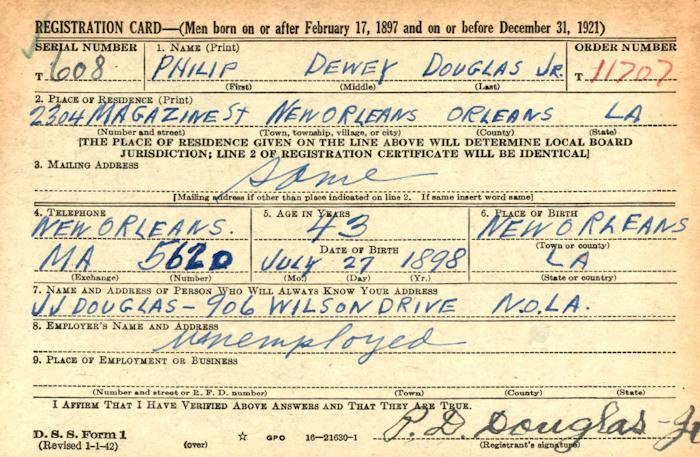 REGISTRATION CARD—(Men born on or after February 17, 1897 and on or before December 31, 1921)
SERIAL NUMBER 1. NAME (Print) ORDER NUMBER
T 608 PHILIP DEWEY DOUGLAS JR. T 11707
(First) (Middle) (Last)
2. PLACE OF RESIDENCE (Print)
2304 MAGAZINE St NEW ORLEANS ORLEANS LA
(Number and street) (Town, township, village, or city) (County) (State)
[THE PLACE OF RESIDENCE GIVEN ON THE LINE ABOVE WILL DETERMINE LOCAL BOARD
JURISDICTION; LINE 2 OF REGISTRATION CERTIFICATE WILL BE IDENTICAL]
3. MAILING ADDRESS
Same
[Mailing address if other than place indicated on line 2. If same insert word same]
4. TELEPHONE 5. AGE IN YEARS 6. PLACE OF BIRTH
NEW ORLEANS. 43 NEW ORLEANS
DATE OF BIRTH (Town or county)
MA 5620 JULY 27 1898 LA
(Exchange) (Number) (Mo.) (Day) (Yr.) (State or country)
7. NAME AND ADDRESS OF PERSON WHO WILL ALWAYS KNOW YOUR ADDRESS
JJ DOUGLAS - 906 WILSON DRIVE N.O.LA.
8. EMPLOYER'S NAME AND ADDRESS
Unemployed
9. PLACE OF EMPLOYMENT OR BUSINESS
(Number and street or R. F. D. number) (Town) (County) (State)
I AFFIRM THAT I HAVE VERIFIED ABOVE ANSWERS AND THAT THEY ARE TRUE.
P. D. Douglas - Jr
D. S. S. Form 1
(Revised 1-1-42) (over) ☆ GPO 16—21630-1 (Registrant's signature)